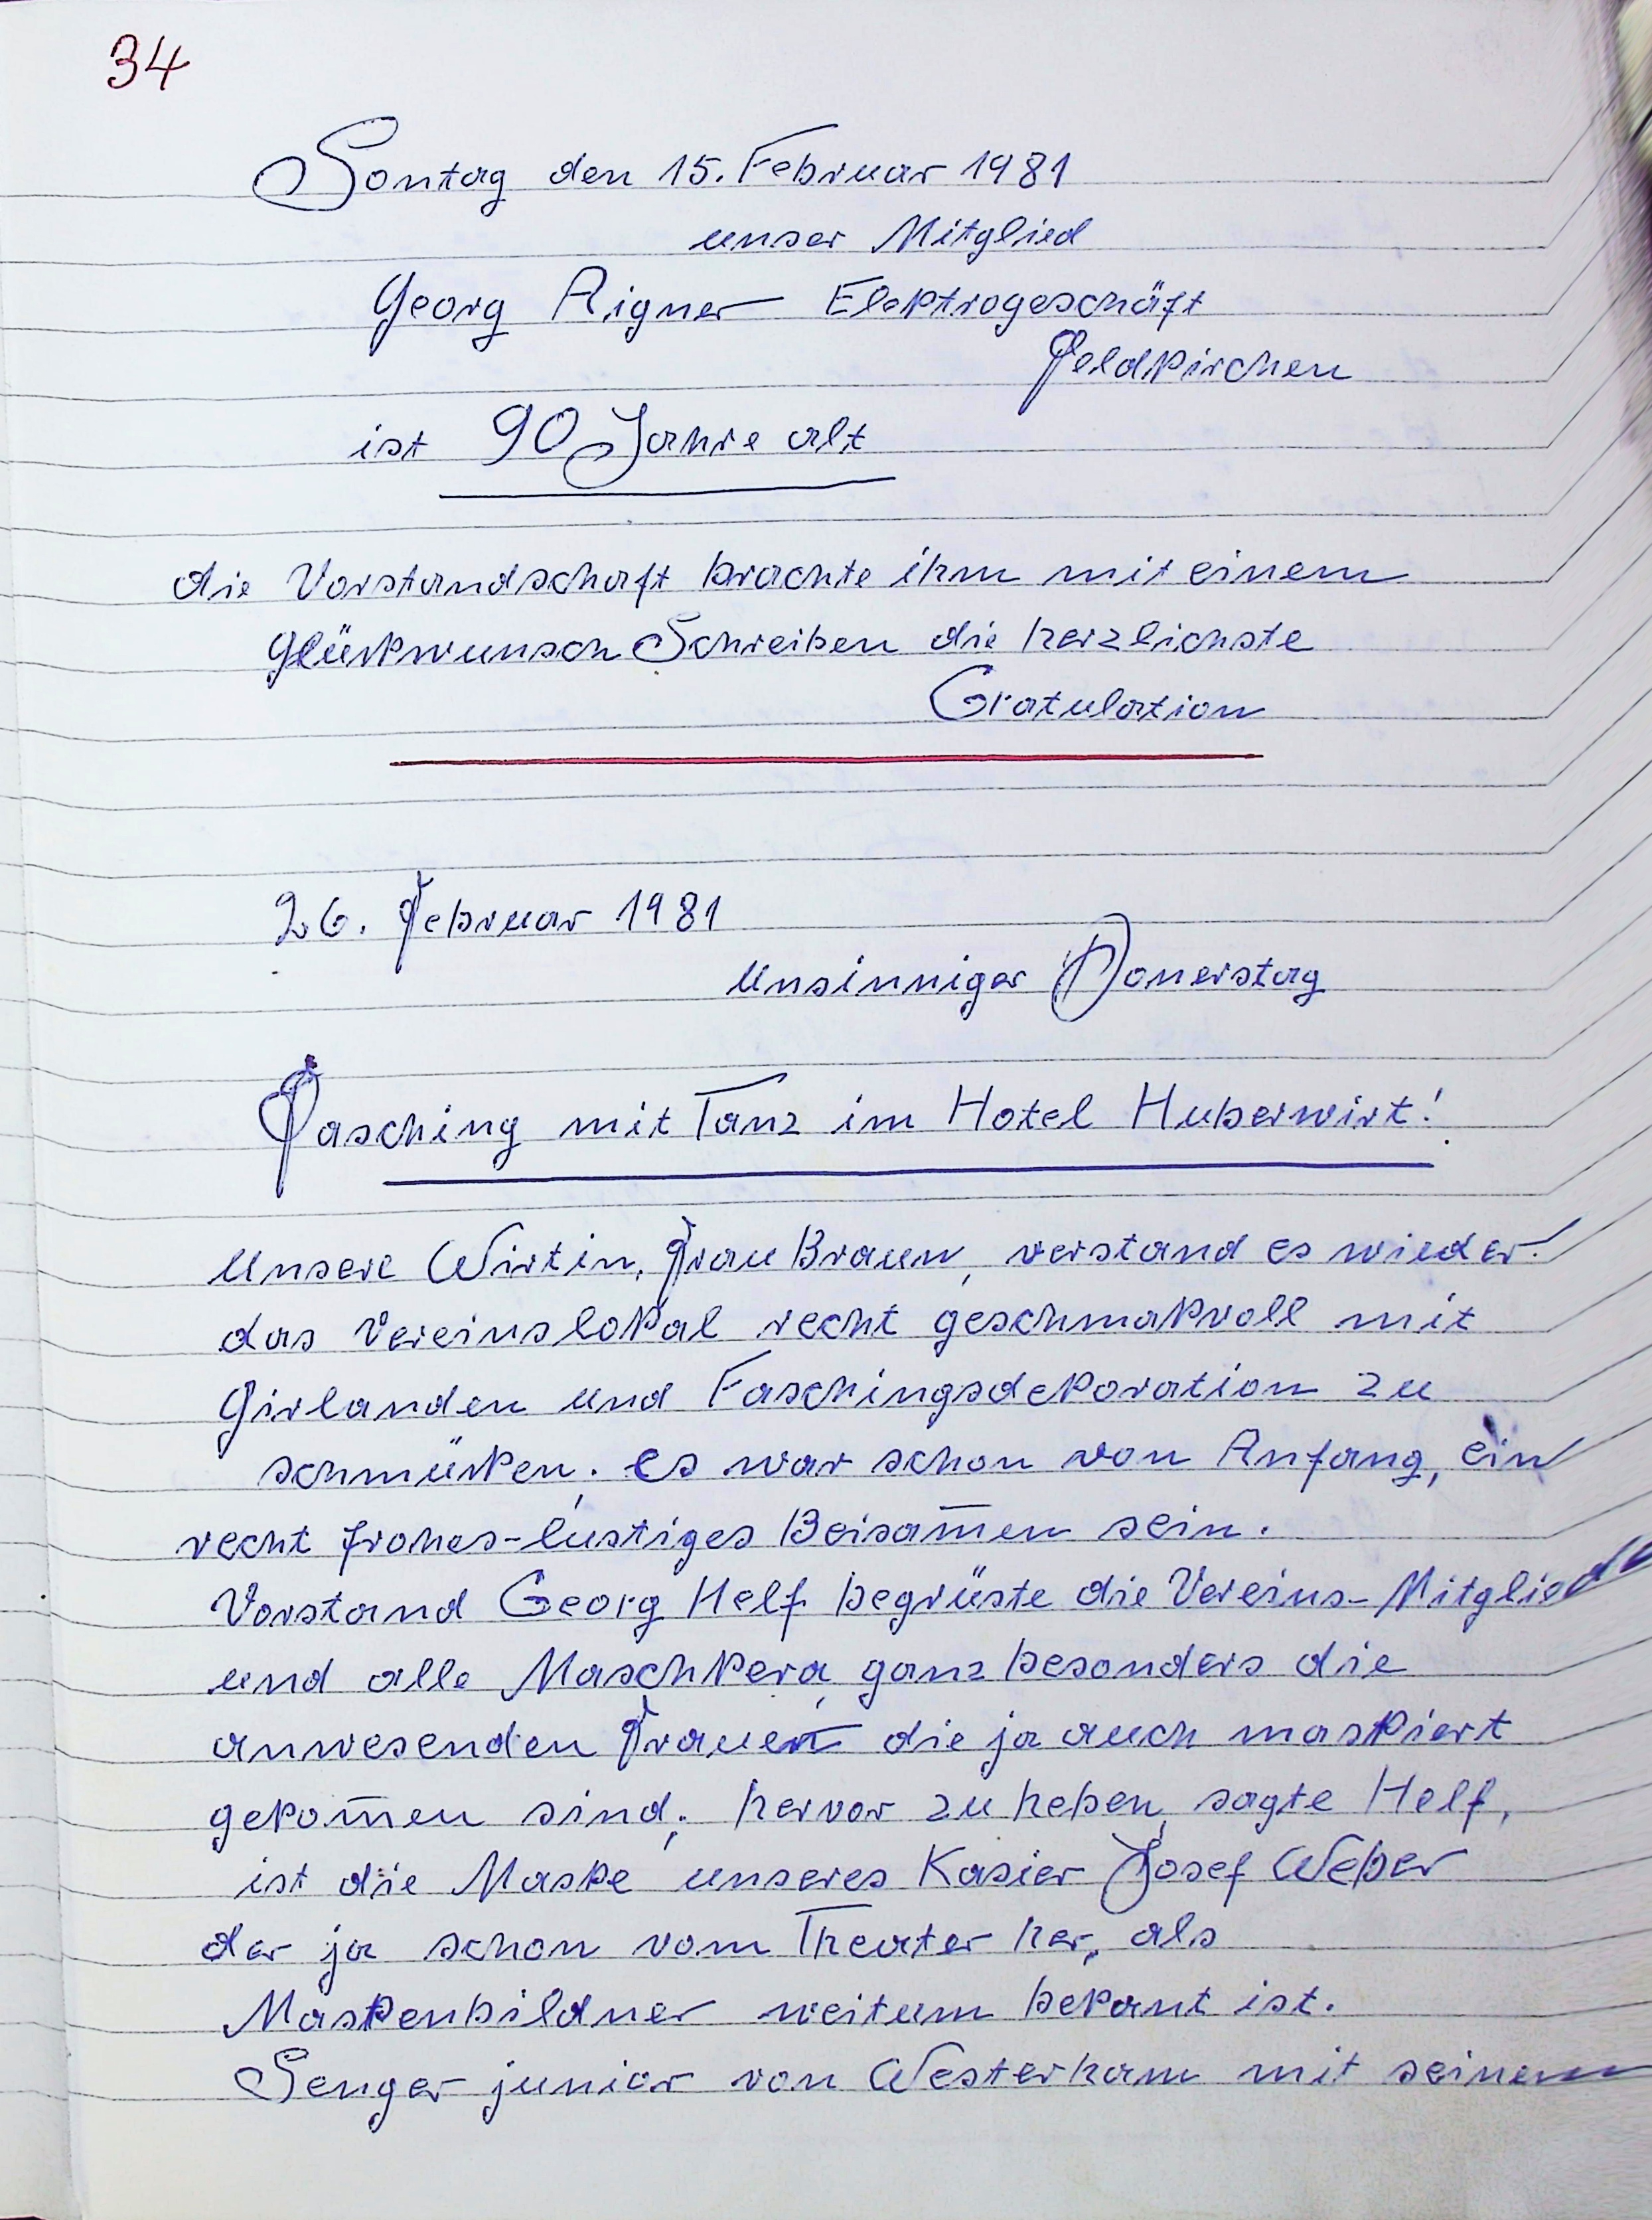 34
Sontag den 15. Februar 1981
unser Mitglied
Georg Aigner Elektrogeschäft
Feldkirchen
ist 90 Jahre alt
die Vorstandschaft brachte ihm mit einem
Glückwunsch Schreiben die herzlichste
Gratulation
26. Februar 1981
Unsinniger Donerstag
Fasching mit Tanz im Hotel Huberwirt!
Unsere Wirtin, Frau Braun, verstand es wieder!
das Vereinslokal recht geschmakvoll mit
Girlanden und Faschingsdekoration zu
schmücken. es war schon von Anfang, ein
recht frohes-lustiges Beisam̅en sein.
Vorstand Georg Helf begrüste die Vereins-Mitglieder
und alle Maschkera, ganz besonders die
anwesenden Frauen die ja auch maskiert
gekom̅en sind; hervor zu heben, sagte Helf,
ist die Maske unseres Kasier Josef Weber
der ja schon vom Theater her, als
Maskenbildner weitum bekant ist.
Senger junior von Westerham mit seinem